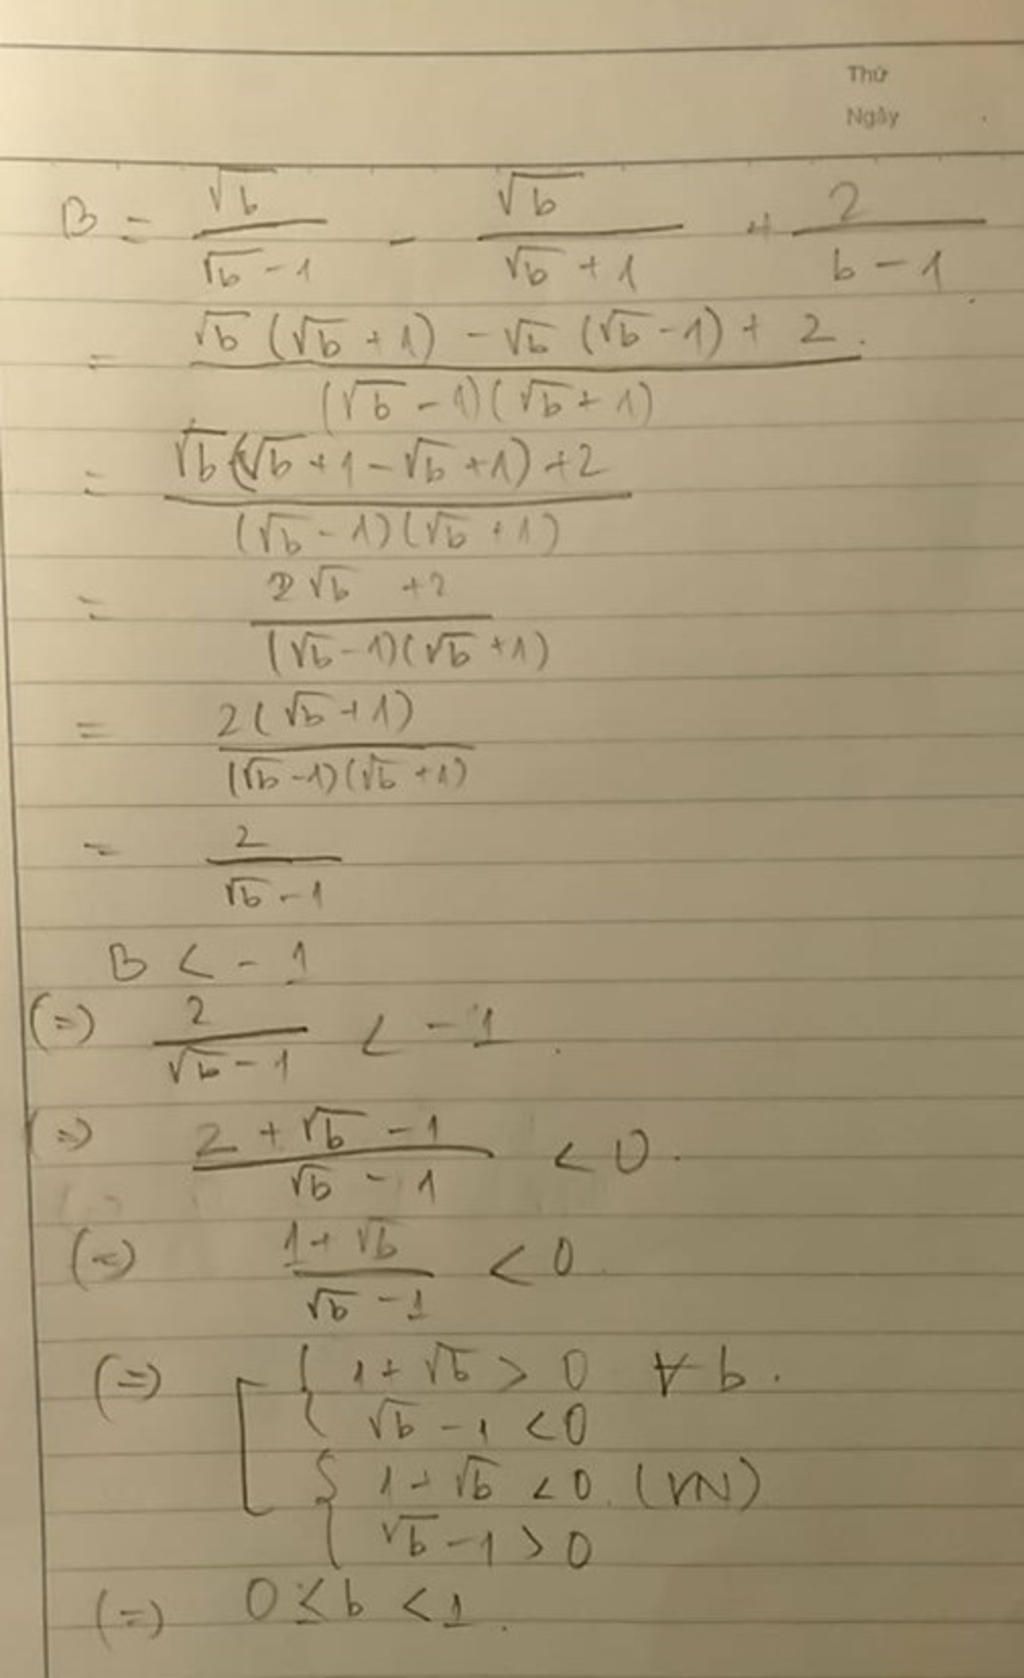 Thứ
Ngày
B = √b/(√b - 1) - √b/(√b + 1) + 2/(b - 1)
= (√b (√b + 1) - √b (√b - 1) + 2)/((√b - 1)(√b + 1))
= (√b (√b + 1 - √b + 1) + 2)/((√b - 1)(√b + 1))
= (2√b + 2)/((√b - 1)(√b + 1))
= 2(√b + 1)/((√b - 1)(√b + 1))
= 2/(√b - 1)
B < - 1
(=) 2/(√b - 1) < - 1
(=) (2 + √b - 1)/(√b - 1) < 0
(=) (1 + √b)/(√b - 1) < 0
(=) [ { 1 + √b > 0 ∀ b.
√b - 1 < 0
{ 1 + √b < 0 (VN)
√b - 1 > 0
(=) 0 ≤ b < 1.